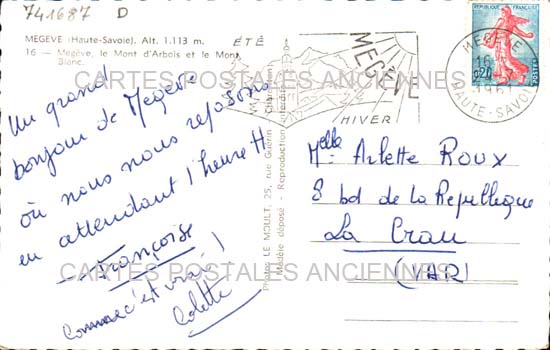 741687 D
MEGEVE (Haute-Savoie). Alt. 1.113 m.
16 — Megève, le Mont d'Arbois et le Mont
Blanc.
Un grand
bonjour de Megève
où nous nous reposons
en attendant l'heure H
Françoise
Comme c'est vrai !
Colette
Photos LE MOULT, 25, rue Guérin - Charenton
Modèle déposé - Reproduction interdite
ÉTÉ
MEGÈVE
HIVER
REPUBLIQUE FRANÇAISE
0,20
POSTES
MEGÈVE
16
196
HAUTE-SAVOIE
Melle Arlette ROUX
8 bd de la République
La Crau
(VAR)
CARTES POSTALES ANCIENNES
CARTES POSTALES ANCIENNES